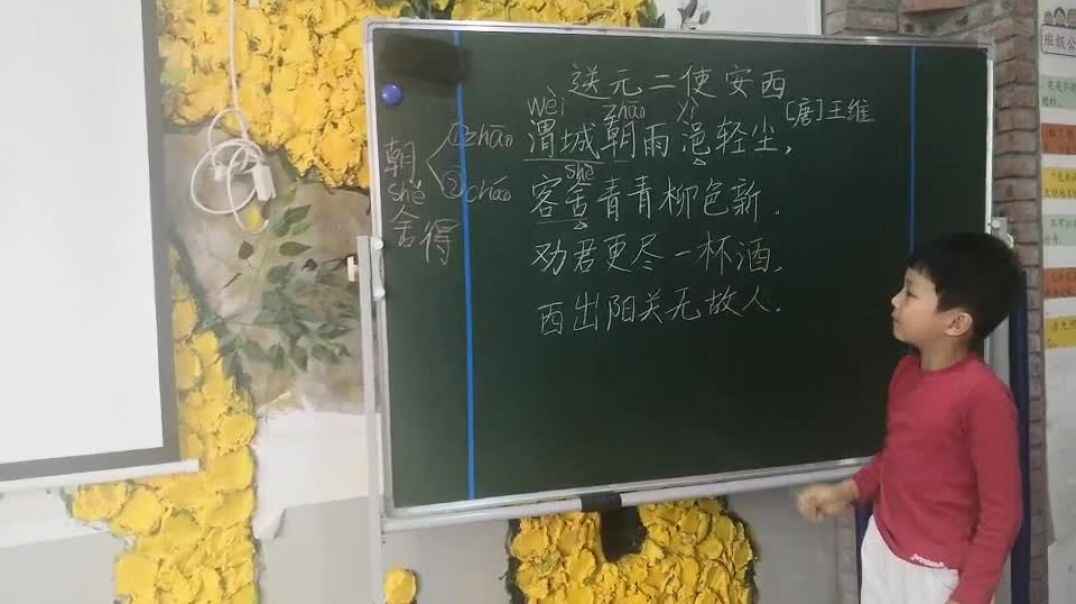 送元二使安西
wèi zhāo yì
[唐]王维
渭城朝雨浥轻尘,
shè
客舍青青柳色新.
劝君更尽一杯酒,
西出阳关无故人.
朝
①zhāo
②cháo
shě
舍得
班级公